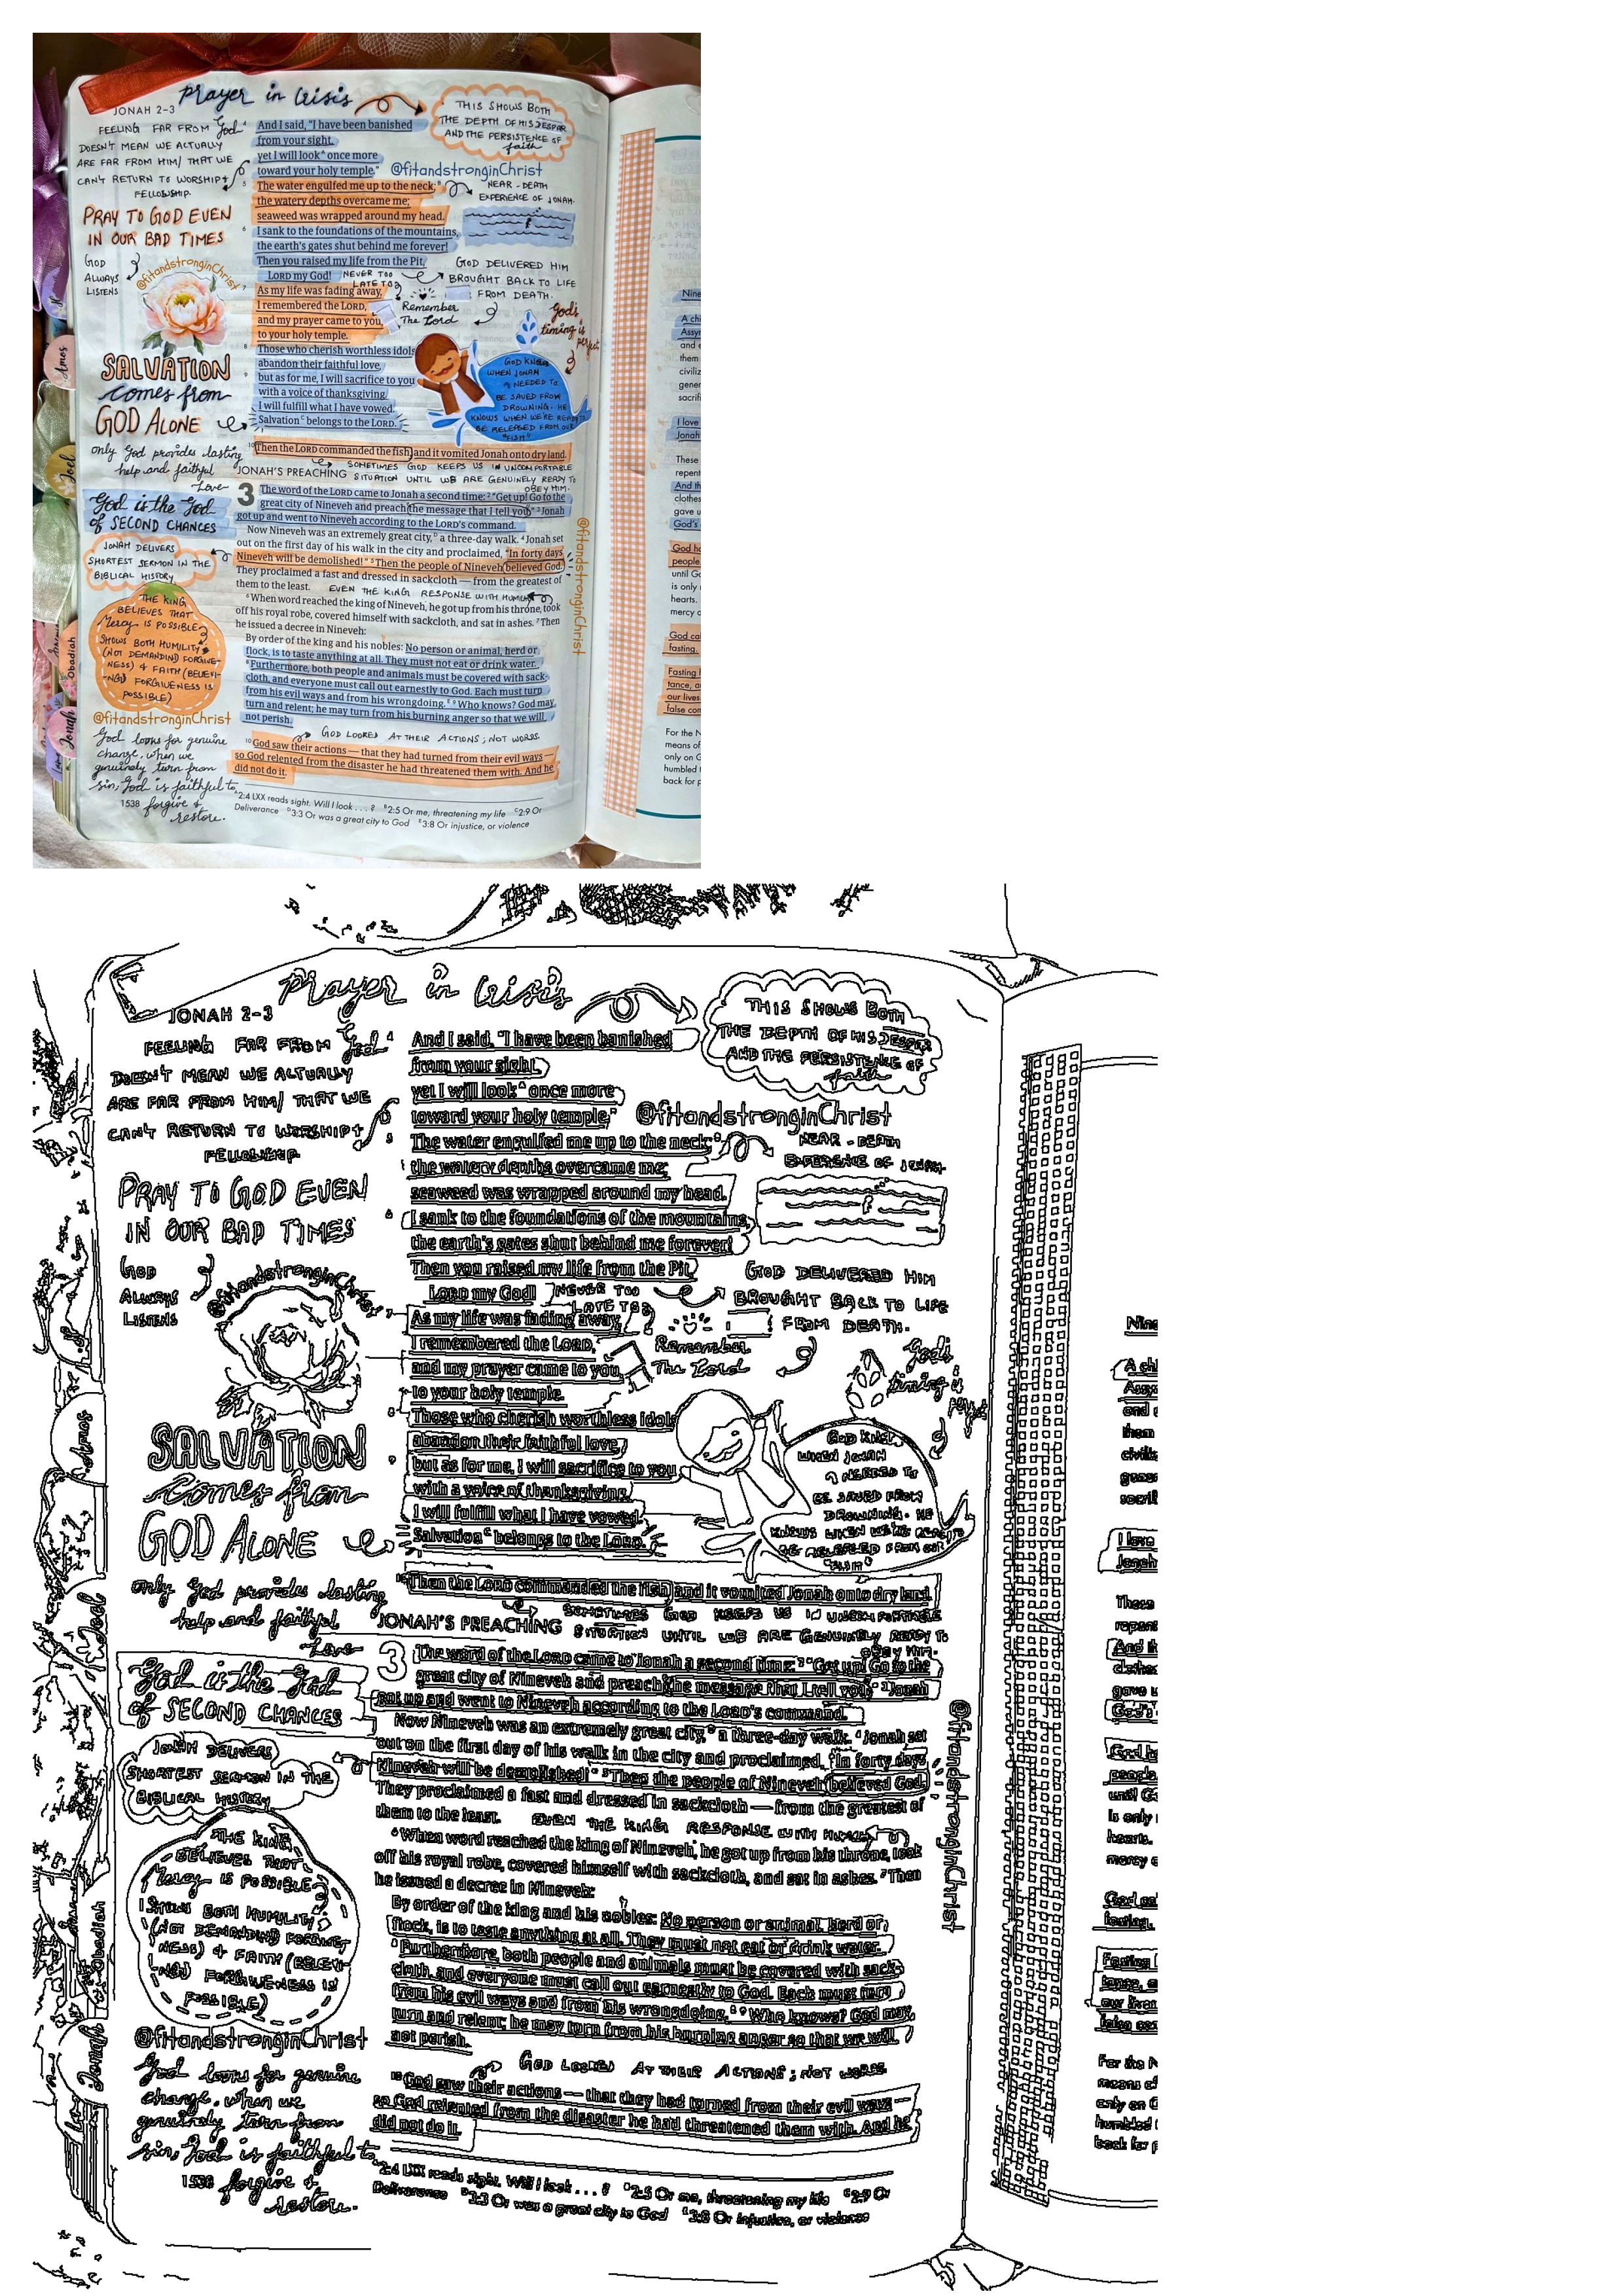 prayer in crisis
JONAH 2–3
FEELING FAR FROM God
DOESN'T MEAN WE ACTUALLY
ARE FAR FROM HIM/ THAT WE
CAN'T RETURN TO WORSHIP+
FELLOWSHIP.
PRAY TO GOD EVEN
IN OUR BAD TIMES
GOD
ALWAYS
LISTENS
@fitandstronginChrist
SALVATION
comes from
GOD ALONE
only God provides lasting
help and faithful
Love
God is the God
of SECOND CHANCES
JONAH DELIVERS
SHORTEST SERMON IN THE
BIBLICAL HISTORY
THE KING
BELIEVES THAT
Mercy IS POSSIBLE
SHOWS BOTH HUMILITY
(NOT DEMANDIND) FORGIVE-
NESS) & FAITH (BELEVI-
NG) FORGIVENESS IS
POSSIBLE)
@fitandstronginChrist
God looks for genuine
change, when we
genuinely turn from
sin, God is faithful to
forgive &
restore.
1538
4 And I said, "I have been banished
from your sight,
yet I will look A once more
toward your holy temple."
5 The water engulfed me up to the neck; B
the watery depths overcame me;
seaweed was wrapped around my head.
6 I sank to the foundations of the mountains,
the earth's gates shut behind me forever!
Then you raised my life from the Pit,
LORD my God!
7 As my life was fading away,
I remembered the LORD,
and my prayer came to you,
to your holy temple.
8 Those who cherish worthless idols
abandon their faithful love,
9 but as for me, I will sacrifice to you
with a voice of thanksgiving.
I will fulfill what I have vowed.
Salvation C belongs to the LORD.
THIS SHOWS BOTH
THE DEPTH OF HIS DESPAR
AND THE PERSISTENCE OF
faith
@fitandstronginChrist
NEAR-DEATH
EXPERIENCE OF JONAH.
GOD DELIVERED HIM
BROUGHT BACK TO LIFE
FROM DEATH.
NEVER TOO
LATE TO
Remember
The Lord
God's
timing is
perfect
GOD KNEW
WHEN JONAH
NEEDED TO
BE SAVED FROM
DROWNING. HE
KNOWS WHEN WE'RE READY TO
BE RELEASED FROM OUR
"FISH"
10 Then the LORD commanded the fish, and it vomited Jonah onto dry land.
SOMETIMES GOD KEEPS US IN UNCOMFORTABLE
SITUATION UNTIL WE ARE GENUINELY READY TO
OBEY HIM.
JONAH'S PREACHING
3 The word of the LORD came to Jonah a second time: 2 "Get up! Go to the
great city of Nineveh and preach the message that I tell you." 3 Jonah
got up and went to Nineveh according to the LORD's command.
Now Nineveh was an extremely great city, D a three-day walk. 4 Jonah set
out on the first day of his walk in the city and proclaimed, "In forty days
Nineveh will be demolished!" 5 Then the people of Nineveh believed God.
They proclaimed a fast and dressed in sackcloth — from the greatest of
them to the least.
EVEN THE KING RESPONSE WITH HUMILITY
6 When word reached the king of Nineveh, he got up from his throne, took
off his royal robe, covered himself with sackcloth, and sat in ashes. 7 Then
he issued a decree in Nineveh:
By order of the king and his nobles: No person or animal, herd or
flock, is to taste anything at all. They must not eat or drink water.
8 Furthermore, both people and animals must be covered with sack-
cloth, and everyone must call out earnestly to God. Each must turn
from his evil ways and from his wrongdoing. E 9 Who knows? God may
turn and relent; he may turn from his burning anger so that we will
not perish.
GOD LOOKED AT THEIR ACTIONS; NOT WORDS.
10 God saw their actions — that they had turned from their evil ways —
so God relented from the disaster he had threatened them with. And he
did not do it.
A 2:4 LXX reads sight. Will I look . . . ? B 2:5 Or me, threatening my life C 2:9 Or
Deliverance D 3:3 Or was a great city to God E 3:8 Or injustice, or violence
@fitandstronginChrist
Amos
Joel
Obadiah
Jonah